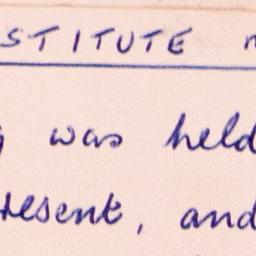 STITUTE
was held
resent, and